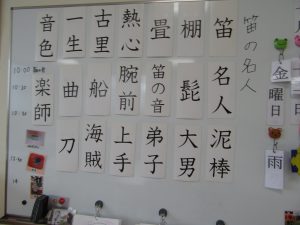 金曜日
雨
笛の名人
笛
名人
泥棒
棚
髭
大男
畳
笛の音
弟子
熱心
腕前
上手
古里
船
海賊
一生
曲
刀
音色
楽師
10:00